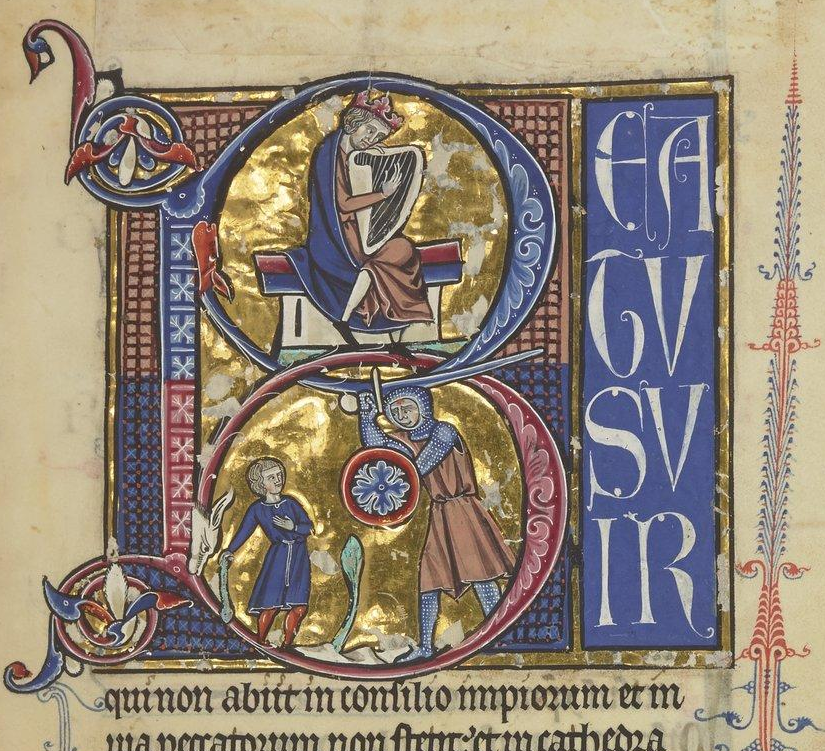 B
EA
TUV
SV
IR
qui non abiit in consilio impiorum et in
uia peccatorum non stetit: et in cathedra